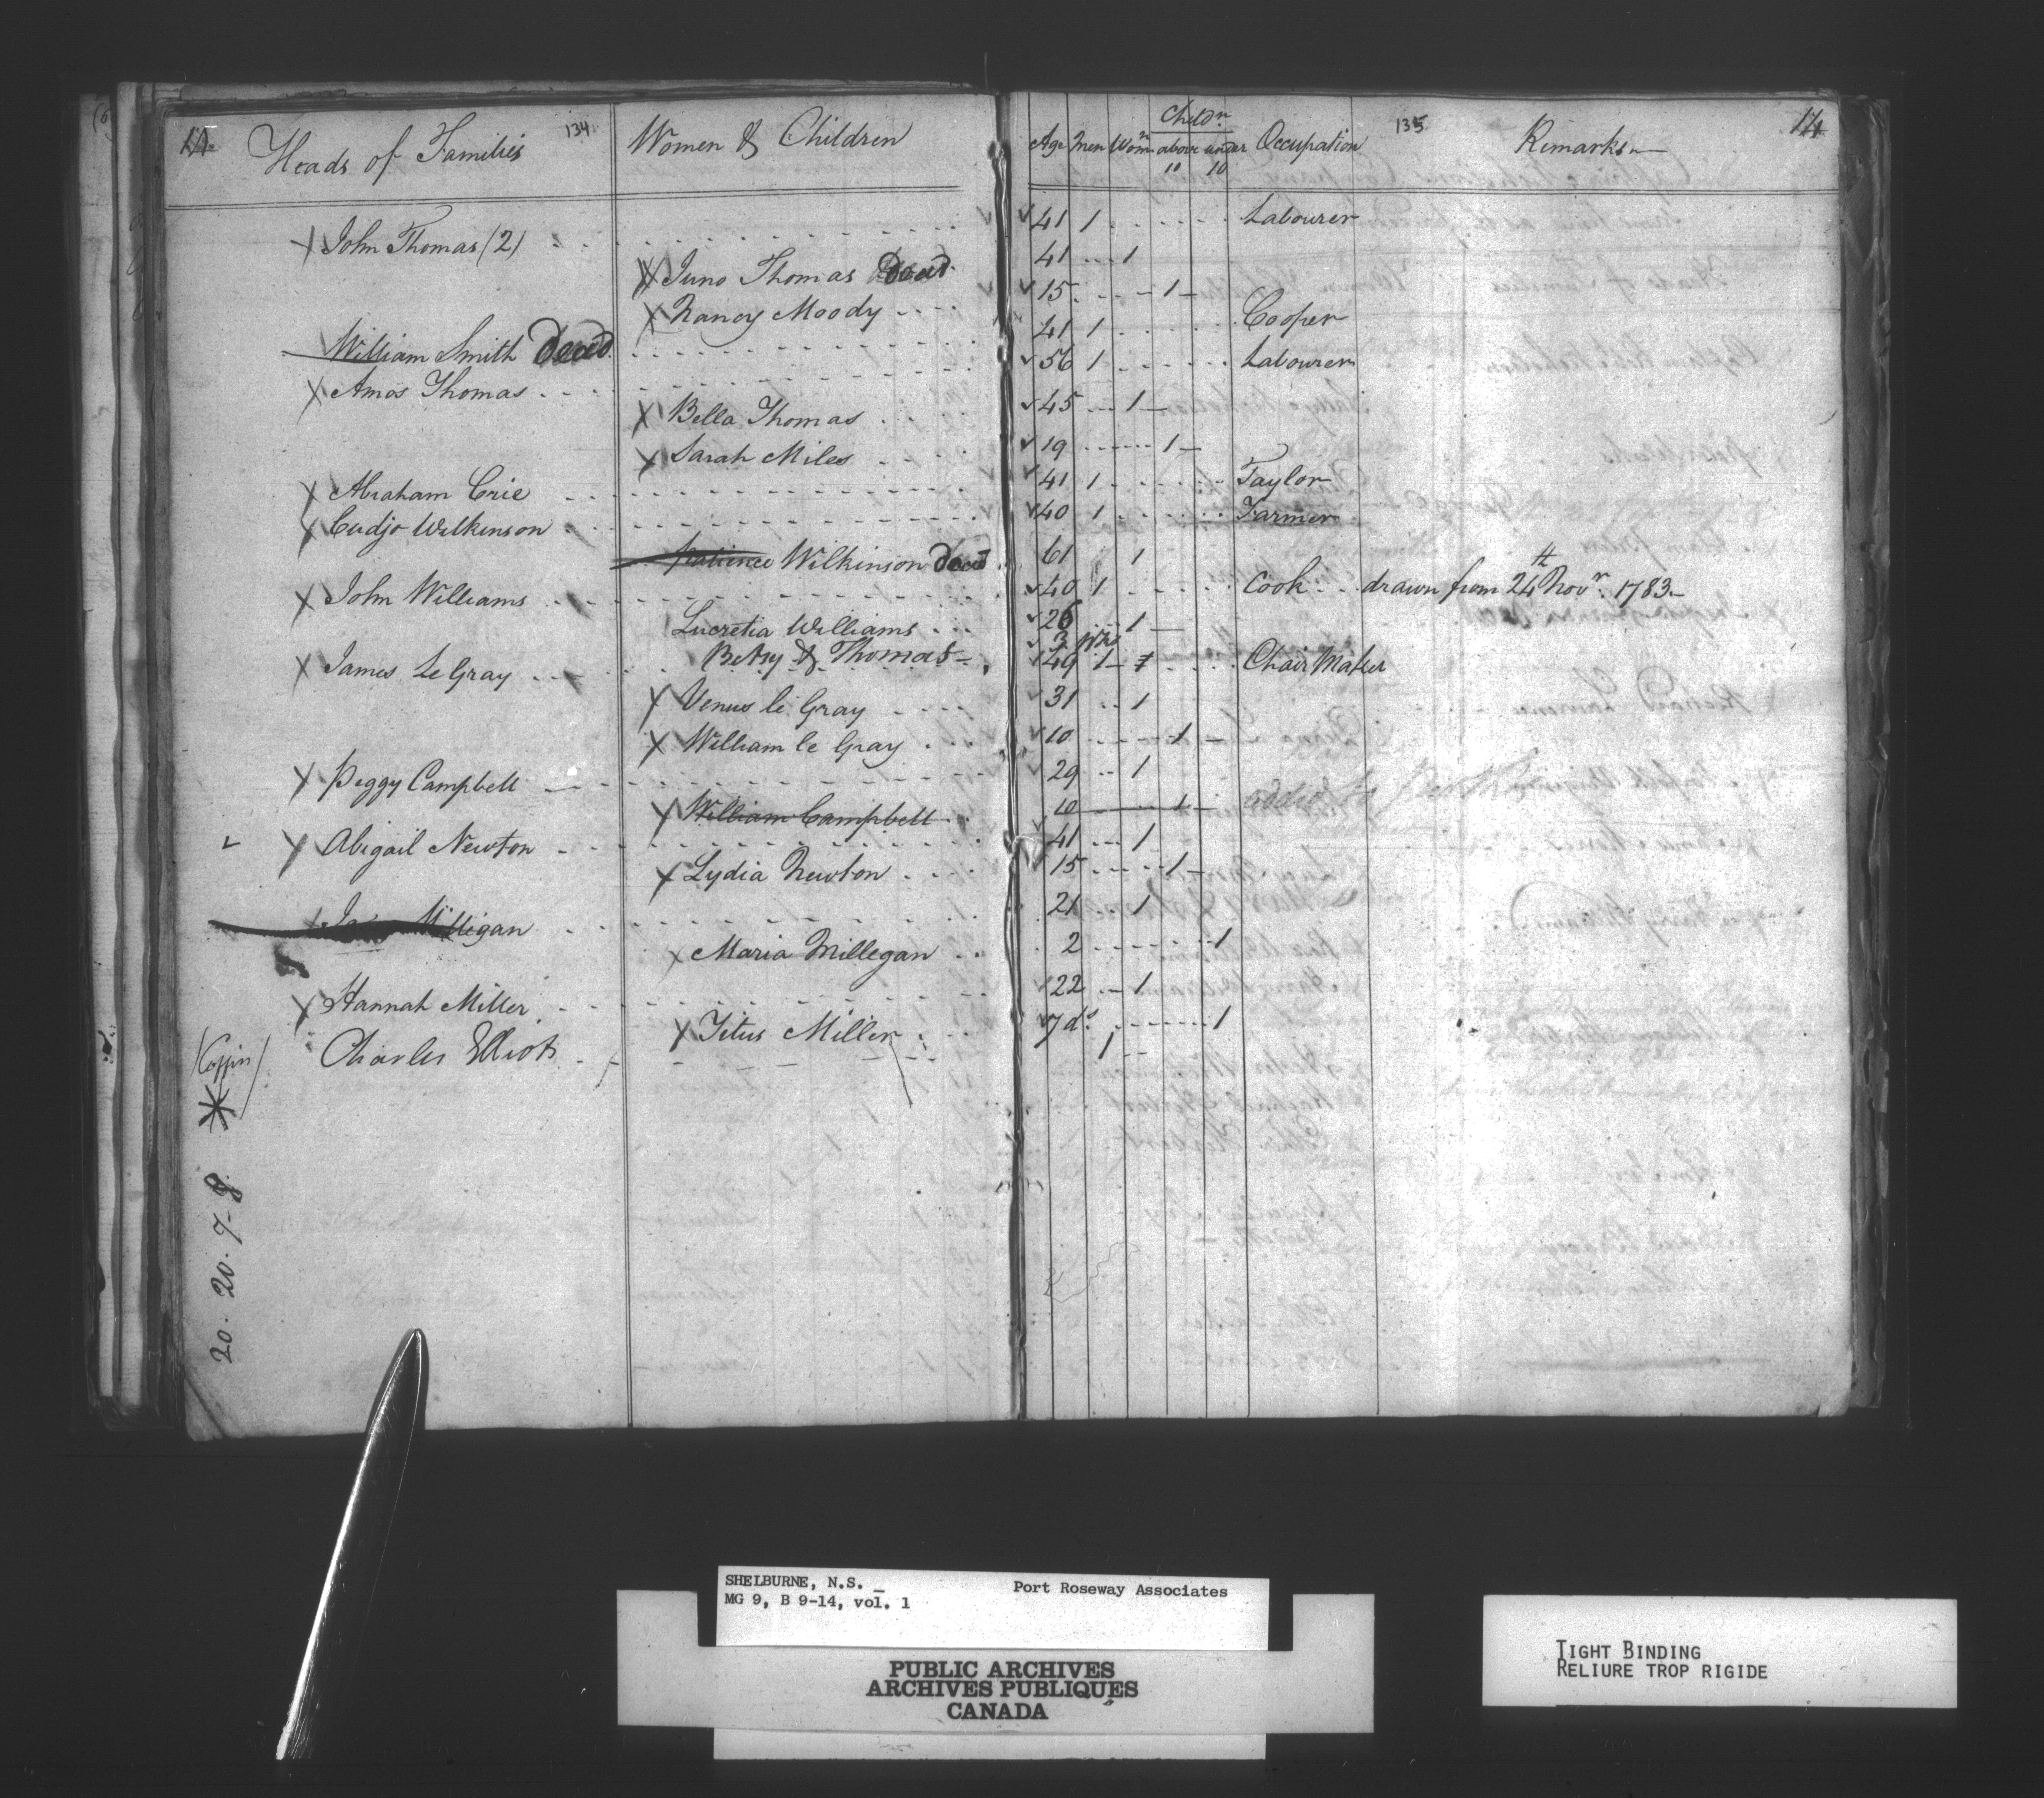 14. Heads of Families 134 Women & Children Age Men Wom.n Child.n above 10 under 10 Occupation 135 Remarks 14
John Thomas (2) 41 1 Labourer
Juno Thomas Dead 41 1
Nancy Moody 15 1
William Smith Dead 41 1 Cooper
Amos Thomas 56 1 Labourer
Bella Thomas 45 1
Sarah Miles 19 1
Abraham Crie 41 1 Taylor
Cudjo Wilkinson 40 1 Farmer
Patience Wilkinson Dead 61 1
John Williams 40 1 Cook drawn from 24th Novr. 1783
Lucretia Williams 26 1
Betsy & Thomas 3 Wks
James Le Gray 49 1 Chair Maker
Venus le Gray 31 1
William le Gray 10 1
Peggy Campbell 29 1
William Campbell 10 1
Abigail Newton 41 1
Lydia Newton 15 1
Milligan 21 1
Maria Millegan 2 1
Hannah Miller 22 1
Titus Miller 7 ds. 1
(Coffin) Charles Elliot 1
20. 20. 7-8
SHELBURNE, N.S. _ Port Roseway Associates
MG 9, B 9-14, vol. 1
PUBLIC ARCHIVES
ARCHIVES PUBLIQUES
CANADA
TIGHT BINDING
RELIURE TROP RIGIDE